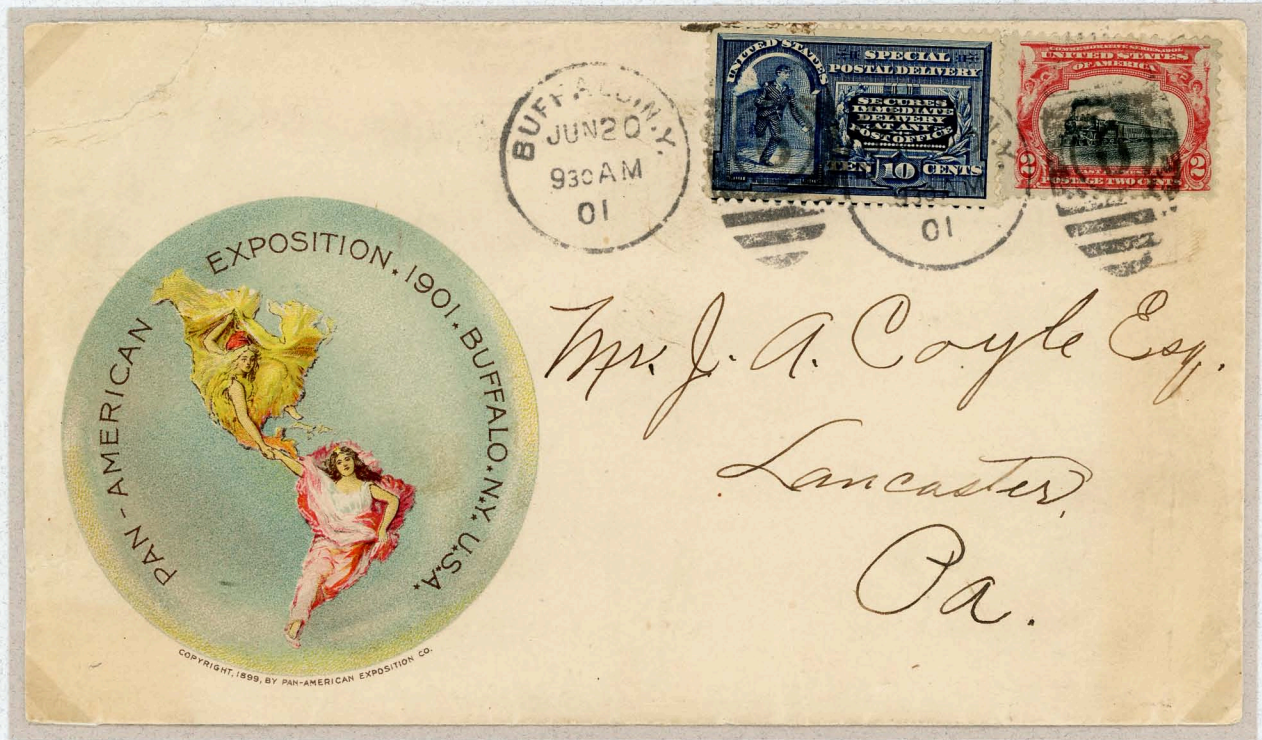 BUFFALO, N.Y.
JUN 20
930 AM
01
UNITED STATES
SPECIAL
POSTAL DELIVERY
SECURES
IMMEDIATE
DELIVERY
AT ANY
POST OFFICE
TEN 10 CENTS
COMMEMORATIVE SERIES, 1901
UNITED STATES
OF AMERICA
2 2
POSTAGE TWO CENTS
N.Y.
930
01
PAN-AMERICAN EXPOSITION ★ 1901 ★ BUFFALO ★ N.Y. U.S.A. ★
COPYRIGHT, 1899, BY PAN-AMERICAN EXPOSITION CO.
Mr. J. A. Coyle Esq.
Lancaster,
Pa.